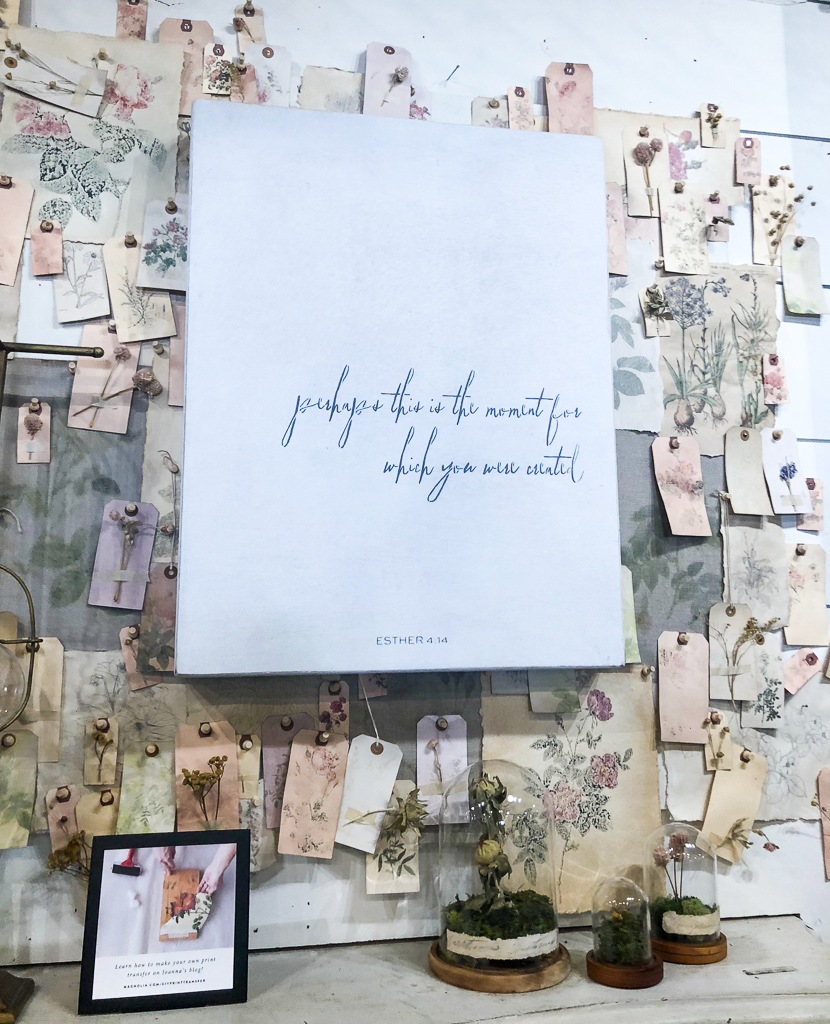 perhaps this is the moment for
which you were created
ESTHER 4:14
Learn how to make your own print
transfer on Joanna's blog!
MAGNOLIA.COM/DIYPRINTTRANSFER